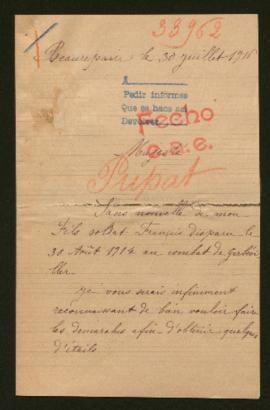 33962
Beaurepaire le 30 juillet 1916
A
Pedir informes
Que se hace así
Devolver
Fecho
e.a.e.
Majesté
Pripat
Sans nouvelle de mon
Fils soldat Français disparu le
30 Août 1914 au combat de Gerbé
viller.
je vous serais infiniment
reconnaissant de bien vouloir faire
les demarches afin d'obtenir quelques
d'étails